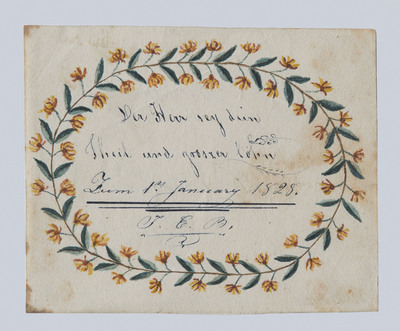 Der Herr sey dein
Theil und grosser Lohn
Zum 1st January 1828.
F. E. B.